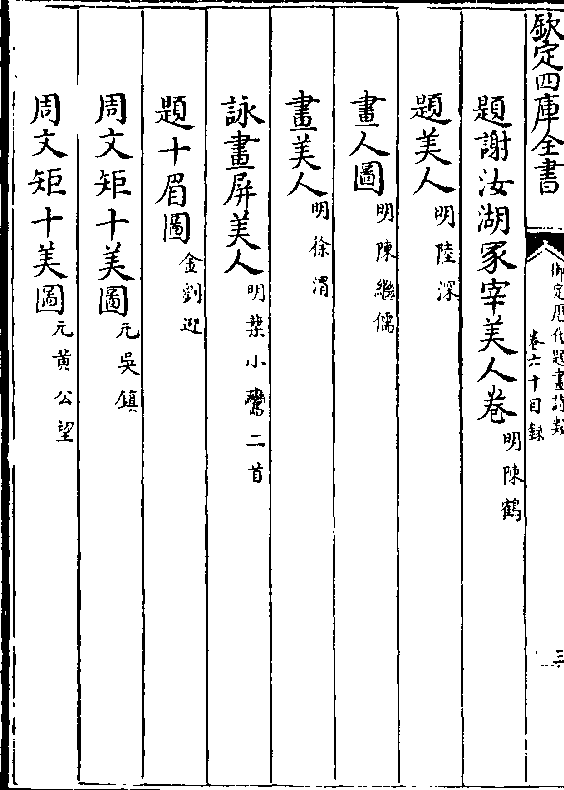 欽定四庫全書
御定歷代題畫詩類
卷六十目錄
三
題謝汝湖冢宰美人卷明陳鶴
題美人明陸深
畫人圖明陳繼儒
畫美人明徐渭
詠畫屏美人明葉小鸞二首
題十眉圖金劉迎
周文矩十美圖元吳鎮
周文矩十美圖元黃公望